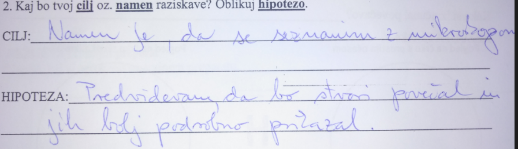 2. Kaj bo tvoj cilj oz. namen raziskave? Oblikuj hipotezo.
CILJ: Namen je, da se seznanim z mikroskopom
HIPOTEZA: Predvidevam, da bo stvari povečal in
jih bolj podrobno prikazal.